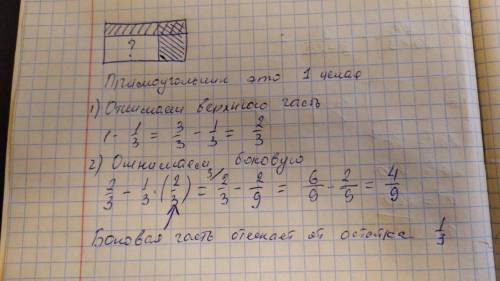 ?
Прямоугольник это 1 целая
1) Отнимаем верхнюю часть
1 - 1/3 = 3/3 - 1/3 = 2/3
2) Отнимаем боковую
2/3 - 1/3 · (2/3) = 2/3 - 2/9 = 6/9 - 2/9 = 4/9
Боковая часть отсекает от остатка 1/3